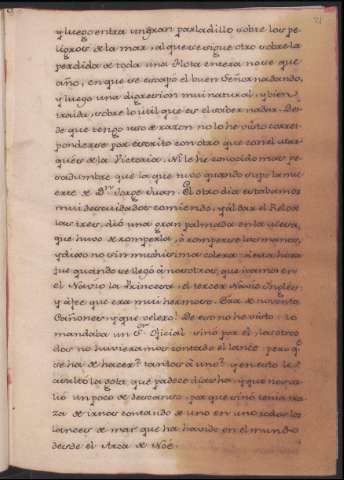 y luego entra un gran parladillo sobre los pe-
ligros de la mar, al que se sigue otro sobre la
perdida de toda una Flota entera no se que
año, en que se escapó el buen Señor nadando,
y luego una digresion mui natural, y bien
traida, sobre lo útil que es el saber nadar. Des-
de que tengo uso de razon no lo he visto corres-
ponderse por escrito con otro que con el Mar-
qués de la Victoria. Ni le he conocido mas pe-
sadumbre que la que tuvo quando supo la mu-
erte de Dⁿ Jorge Juan. El otro dia estabamos
mui descuidados comiendo, y al dar el Relox
las tres, dió una gran palmada en la mesa,
que huvo de romperla, ó romperse las manos,
y dixo no sin muchisima colera: á esta hora
fue quando se llegó á nosotros, que ivamos en
el Navio la Princesa, el tercer Navio Inglés,
y á fee que era mui hermoso. Era de noventa
Cañones: y que velero! De eso no he visto. Lo
mandaba un Oficial sino por el, los otros
dos no huvieramos contado el lance. Pero qᵉ
se ha de hacer? tantos á uno? y en esto le
asaltó la gota, que padece dias ha, y que nos va-
lió un poco de descanso, porque sinó tenia tra-
za de irnos contando de uno en uno todos los
lances de mar que ha havido en el mundo
desde el Arca de Noé.